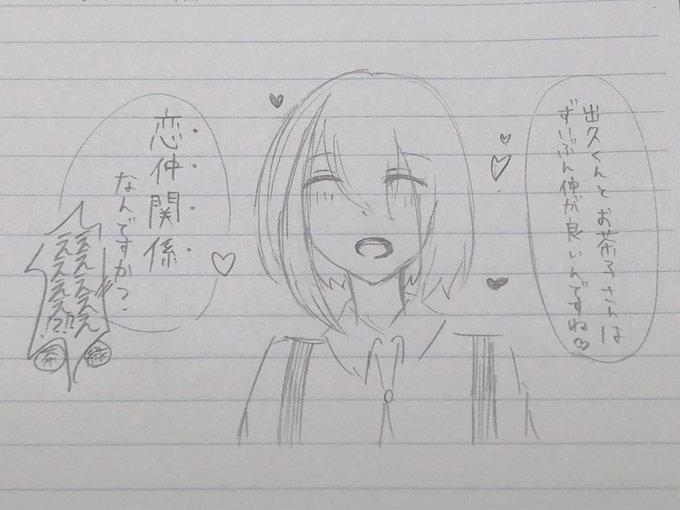 出久くんとお茶子さんは
ずいぶん仲が良いんですね♡
恋仲関係
なんですか?
ええええええ
ええええええ!?!?
緑
茶